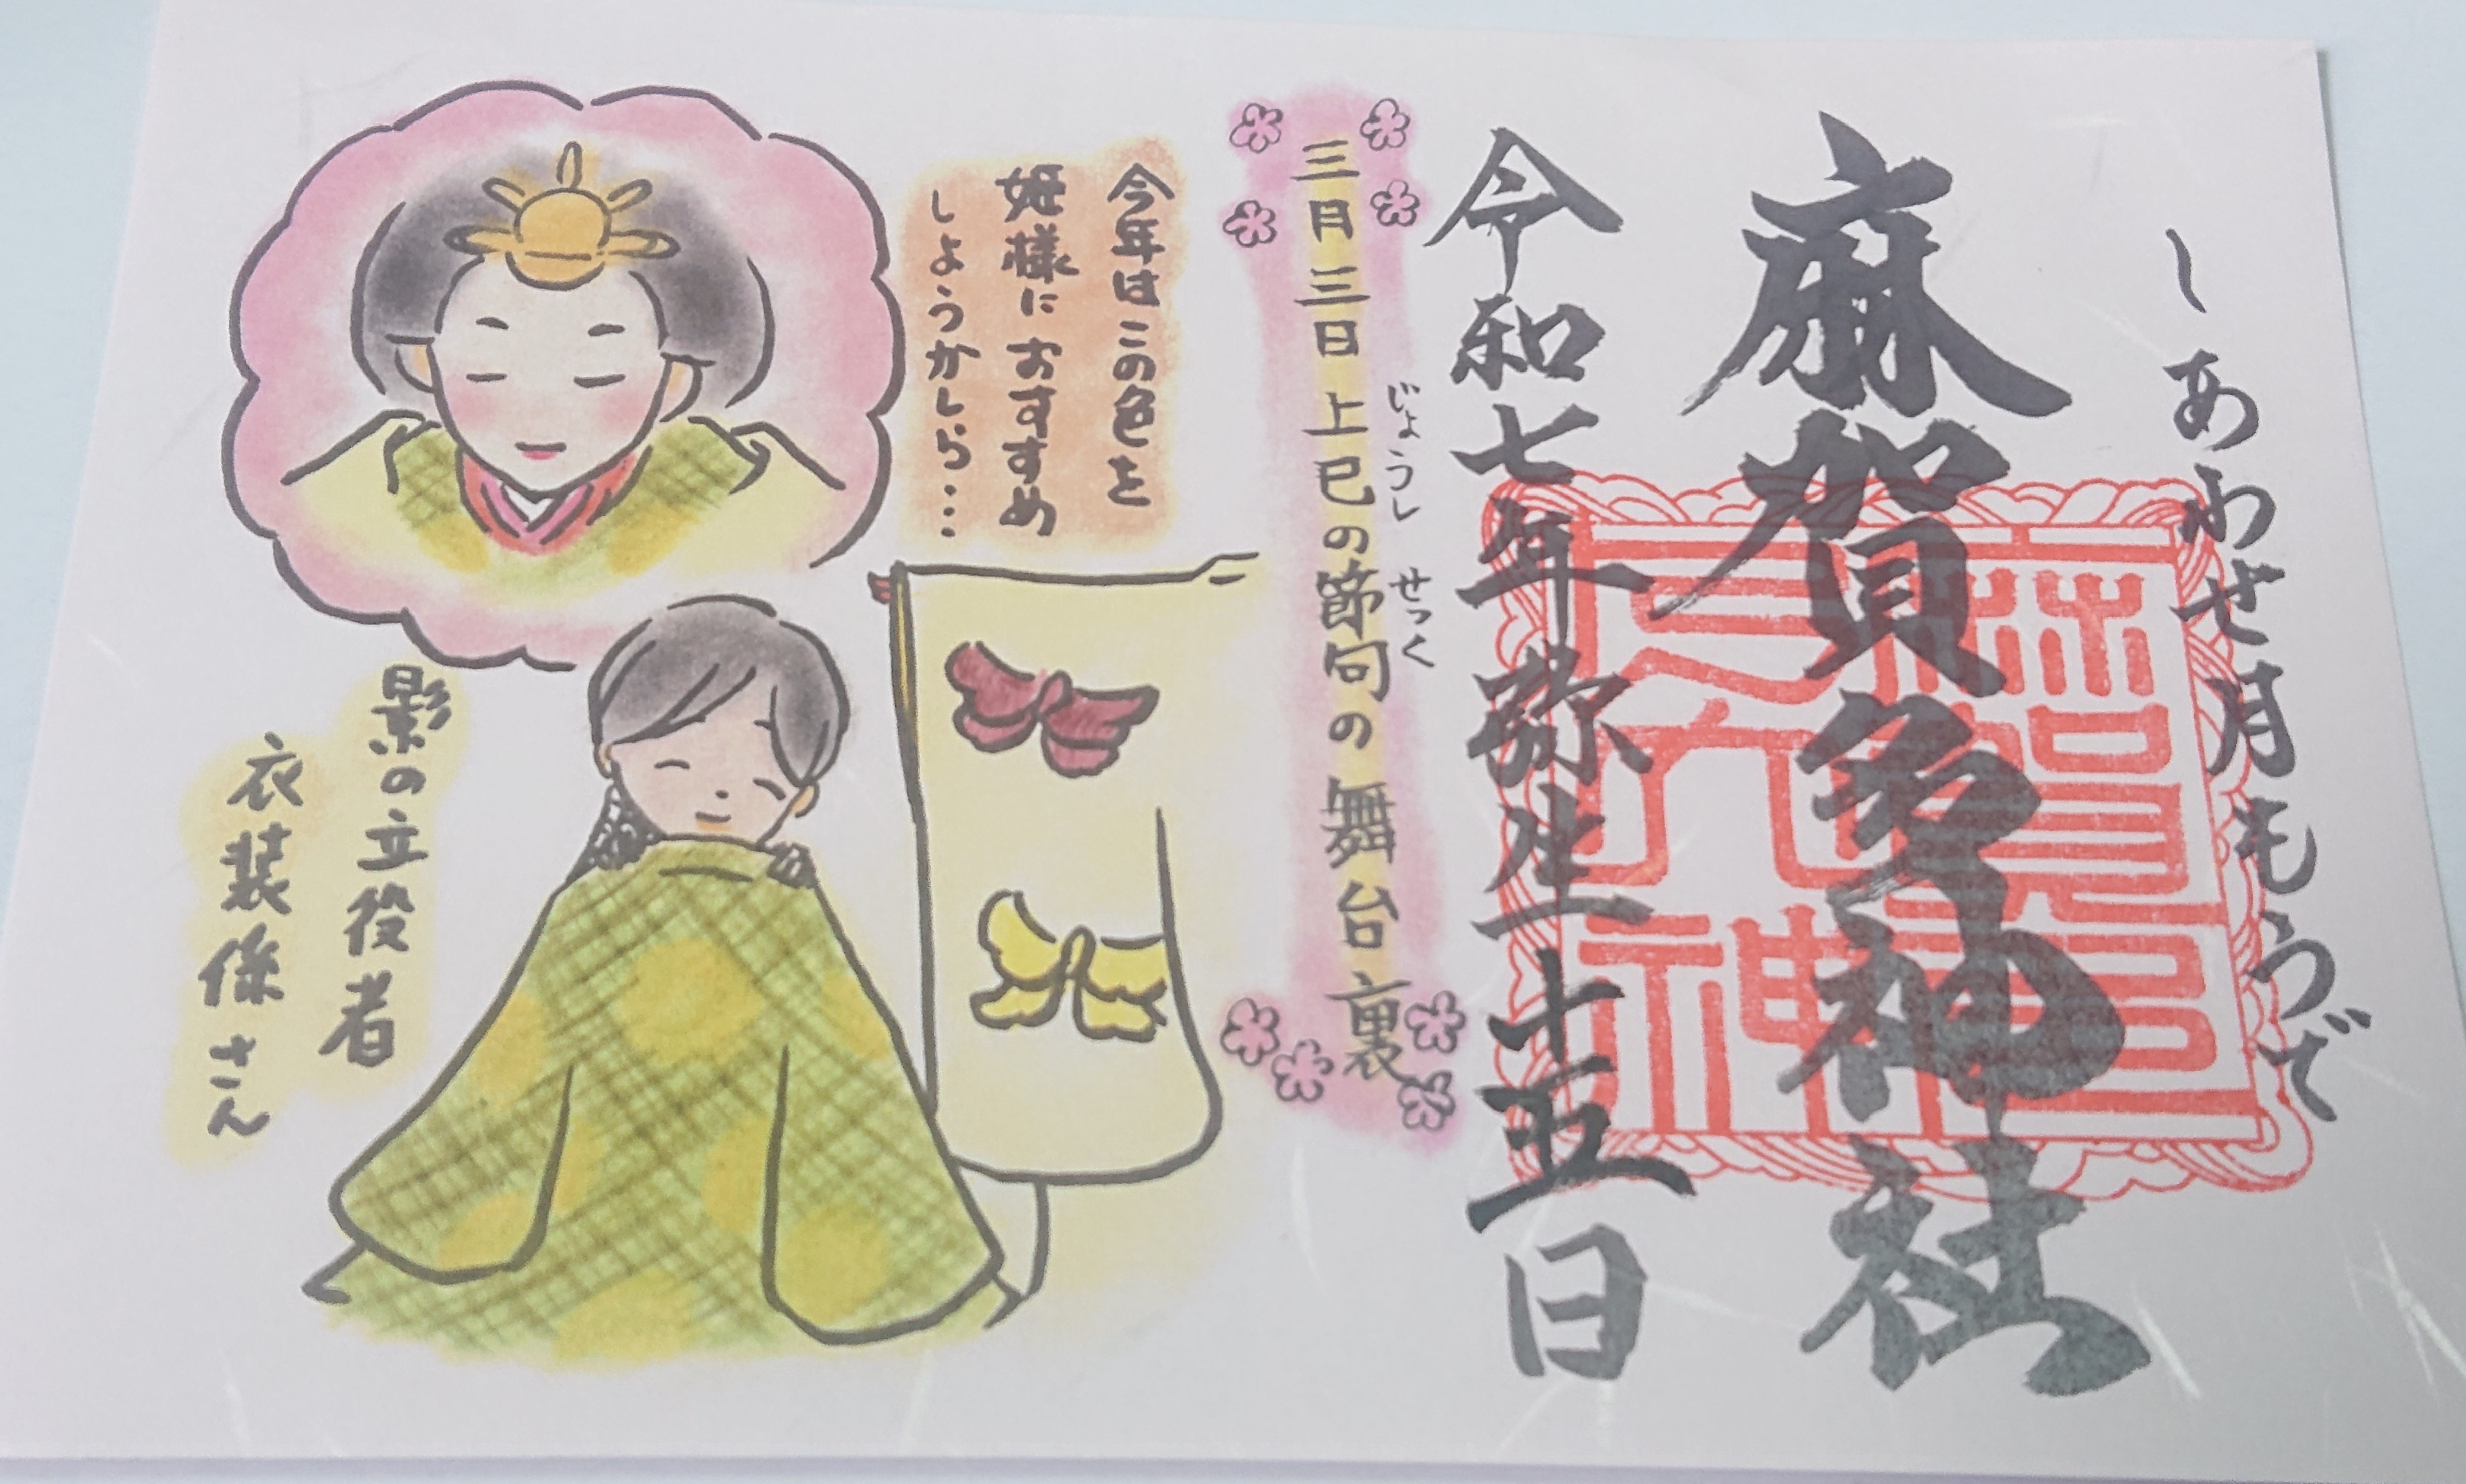 しあわせ月もうで
麻賀多神社
令和七年弥生十五日
じょうし せっく
三月三日上巳の節句の舞台裏
今年はこの色を
姫様におすすめ
しようかしら…
影の立役者
衣装係さん